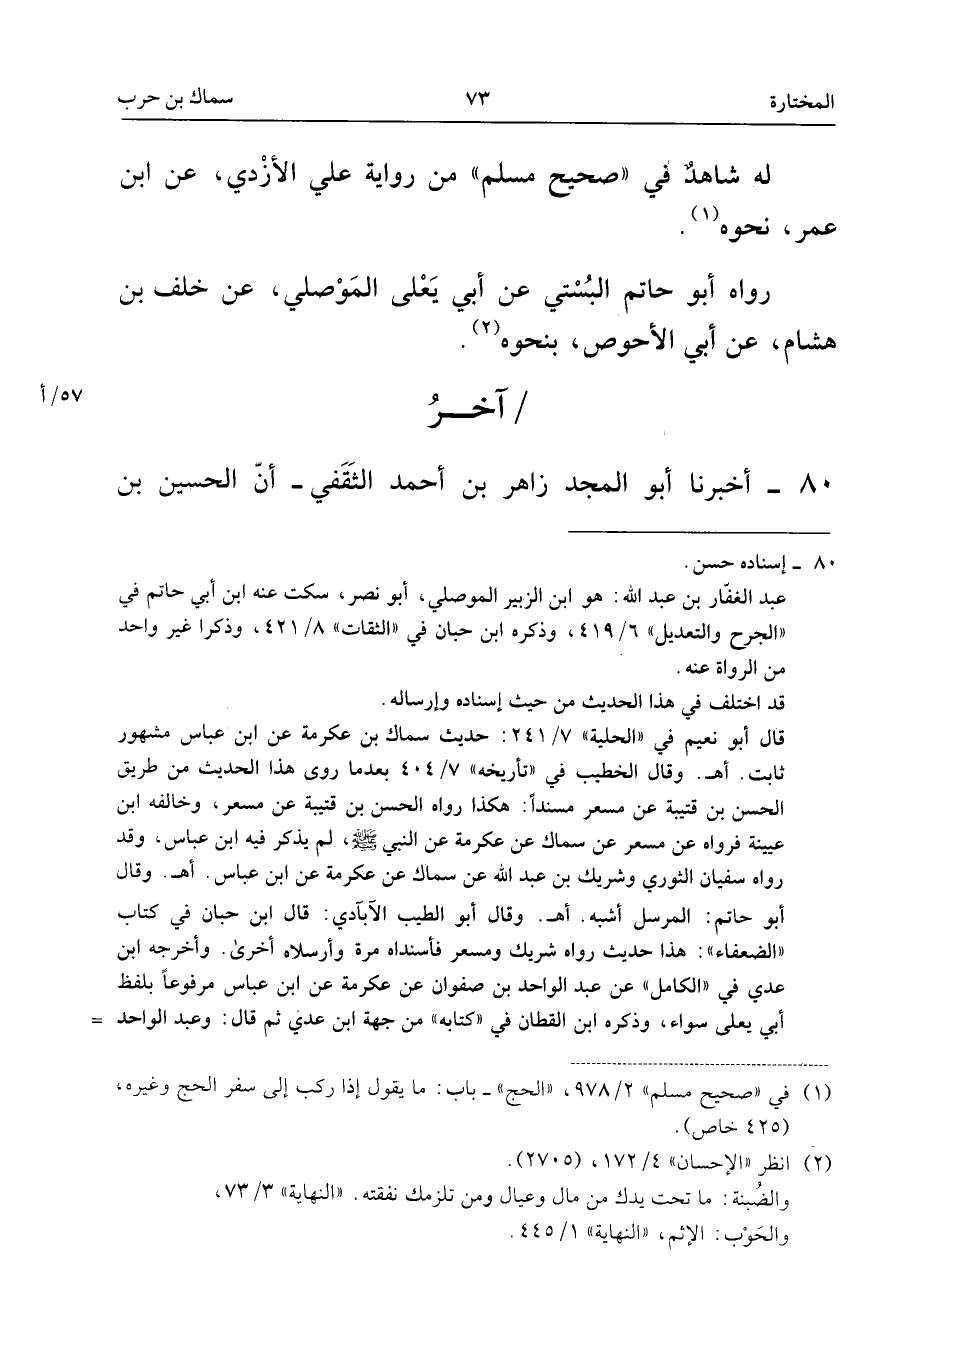 المختارة ٧٣ سماك بن حرب
له شاهدٌ في «صحيح مسلم» من رواية علي الأزْدي، عن ابن
عمر، نحوه(١).
رواه أبو حاتم البُسْتي عن أبي يَعْلى المَوْصلي، عن خلف بن
هشام، عن أبي الأحوص، بنحوه(٢).
/ آخـــرُ ٥٧/أ
٨٠ ـ أخبرنا أبو المجد زاهر بن أحمد الثَقَفي ـ أنّ الحسين بن
٨٠ ـ إسناده حسن.
عبد الغفّار بن عبد الله: هو ابن الزبير الموصلي، أبو نصر، سكت عنه ابن أبي حاتم في
«الجرح والتعديل» ٤١٩/٦، وذكره ابن حبان في «الثقات» ٤٢١/٨، وذكرا غير واحد
من الرواة عنه.
قد اختلف في هذا الحديث من حيث إسناده وإرساله.
قال أبو نعيم في «الحلية» ٢٤١/٧: حديث سماك بن عكرمة عن ابن عباس مشهور
ثابت. أهـ. وقال الخطيب في «تأريخه» ٤٠٤/٧ بعدما روى هذا الحديث من طريق
الحسن بن قتيبة عن مسعر مسنداً: هكذا رواه الحسن بن قتيبة عن مسعر، وخالفه ابن
عيينة فرواه عن مسعر عن سماك عن عكرمة عن النبي ﷺ، لم يذكر فيه ابن عباس، وقد
رواه سفيان الثوري وشريك بن عبد الله عن سماك عن عكرمة عن ابن عباس. أهـ. وقال
أبو حاتم: المرسل أشبه. أهـ. وقال أبو الطيب الآبآدي: قال ابن حبان في كتاب
«الضعفاء»: هذا حديث رواه شريك ومسعر فأسنداه مرة وأرسلاه أخرىٰ. وأخرجه ابن
عدي في «الكامل» عن عبد الواحد بن صفوان عن عكرمة عن ابن عباس مرفوعاً بلفظ
أبي يعلى سواء، وذكره ابن القطان في «كتابه» من جهة ابن عدي ثم قال: وعبد الواحد =
(١) في «صحيح مسلم» ٩٧٨/٢، «الحج» ـ باب: ما يقول إذا ركب إلى سفر الحج وغيره،
(٤٢٥ خاص).
(٢) انظر «الإحسان» ١٧٢/٤، (٢٧٠٥).
والضُبنة: ما تحت يدك من مال وعيال ومن تلزمك نفقته. «النهاية» ٧٣/٣،
والحَوْب: الإثم، «النهاية» ٤٤٥/١.